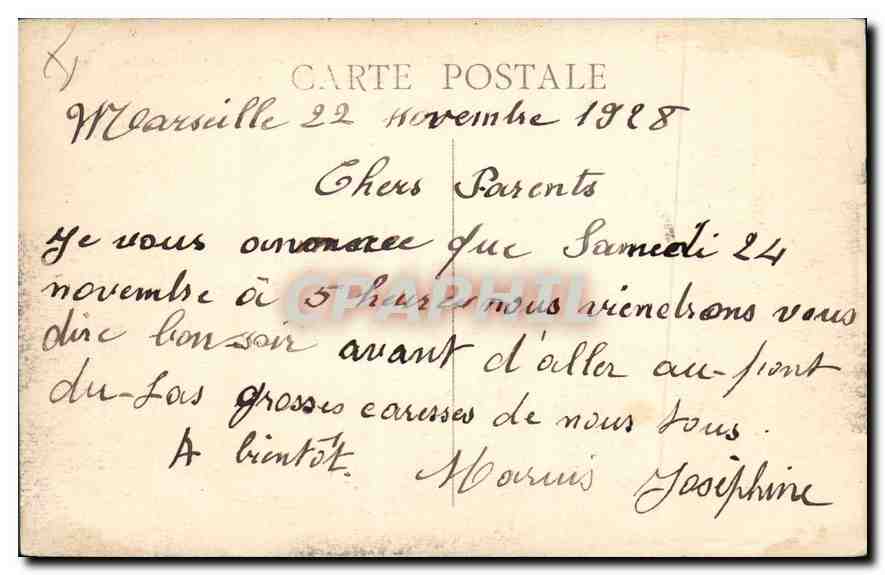 CARTE POSTALE
Marseille 22 novembre 1928
Chers Parents
Je vous annonce que Samedi 24
novembre à 5 heures nous viendrons vous
dire bon-soir avant d'aller au-pont
du-Las grosses caresses de nous tous.
A bientôt. Marius Joséphine
CPAPHIL